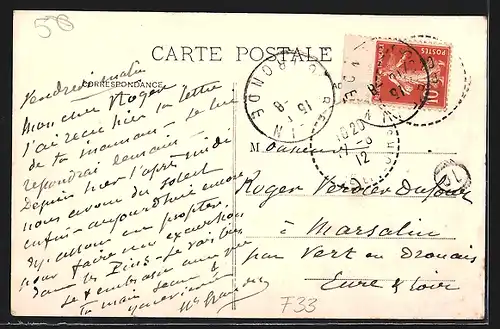 58
CARTE POSTALE
CORRESPONDANCE
Vendredi matin
Mon cher Roger
J'ai reçu hier ta lettre
de ta maman - je lui
répondrai demain
Depuis hier l'après midi
nous avons du soleil
enfin - aujourd'hui encore
pour faire une excursion
dans les Pins - Je vais bien
Je t'embrasse ainsi que
ta maman
POSTES
10
GIRONDE
15
8
1020
17-8
12
Monsieur
Roger Verdier Dufour
à Marsalin
par Vert en Drouais
Eure & Loir
F33